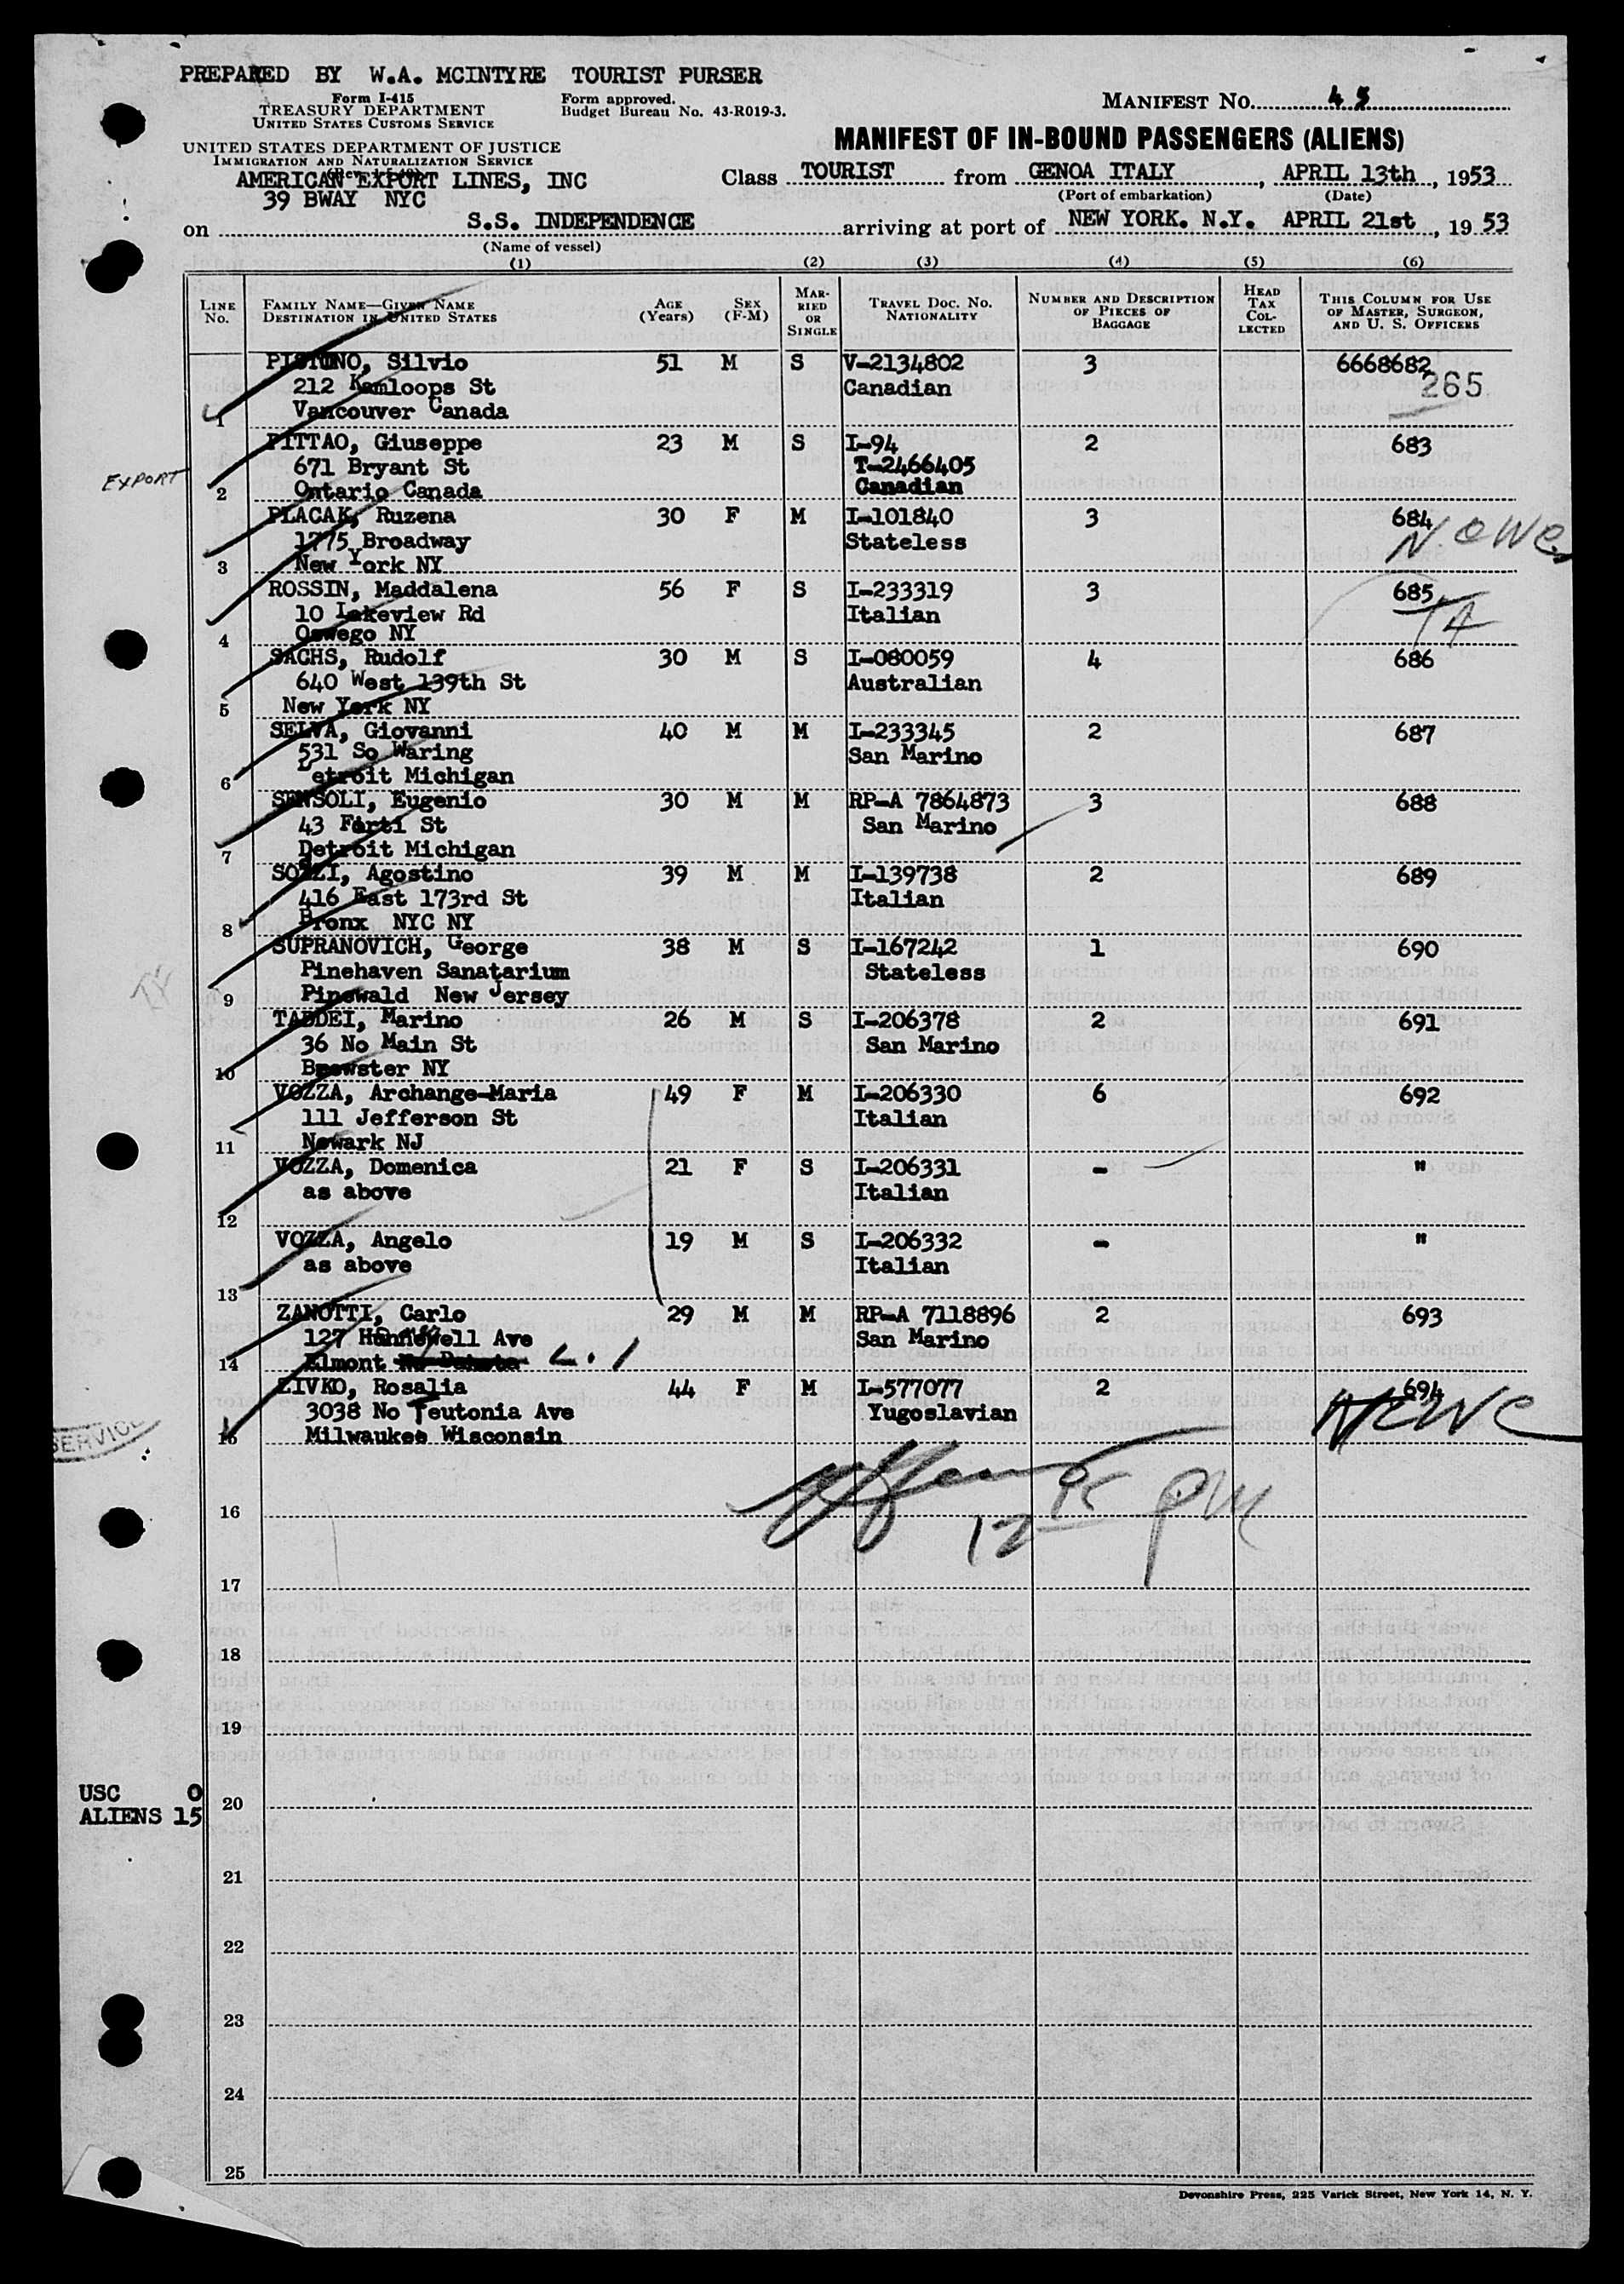 PREPARED BY W.A. MCINTYRE TOURIST PURSER
Form I-415
TREASURY DEPARTMENT
UNITED STATES CUSTOMS SERVICE
Form approved.
Budget Bureau No. 43-R019-3.
MANIFEST NO.
UNITED STATES DEPARTMENT OF JUSTICE
IMMIGRATION AND NATURALIZATION SERVICE
MANIFEST OF IN-BOUND PASSENGERS (ALIENS)
AMERICAN EXPORT LINES, INC
39 BWAY NYC
Class TOURIST from GENOA ITALY, APRIL 13th, 1953
(Port of embarkation) (Date)
on S.S. INDEPENDENCE arriving at port of NEW YORK. N.Y. APRIL 21st, 19 53
(Name of vessel)
(1) (2) (3) (4) (5) (6)
LINE NO.
FAMILY NAME—GIVEN NAME
DESTINATION IN UNITED STATES
AGE (Years)
SEX (F-M)
MARRIED OR SINGLE
TRAVEL DOC. NO. NATIONALITY
NUMBER AND DESCRIPTION OF PIECES OF BAGGAGE
HEAD TAX COLLECTED
THIS COLUMN FOR USE OF MASTER, SURGEON, AND U. S. OFFICERS
PISTUNO, Silvio 51 M S V-2134802 3 6668682
212 Kamloops St Canadian 265
1 Vancouver Canada
PITTAO, Giuseppe 23 M S I-94 2 683
EXPORT 671 Bryant St T-2466405
2 Ontario Canada Canadian
PLACAK, Ruzena 30 F M I-101840 3 684
1775 Broadway Stateless
3 New York NY
ROSSIN, Maddalena 56 F S I-233319 3 685
10 Lakeview Rd Italian
4 Oswego NY
SACHS, Rudolf 30 M S I-080059 4 686
640 West 139th St Australian
5 New York NY
SELVA, Giovanni 40 M M I-233345 2 687
531 So Waring San Marino
6 Detroit Michigan
SENSOLI, Eugenio 30 M M RP-A 7864873 3 688
43 St San Marino
7 Detroit Michigan
SOZZI, Agostino 39 M M I-139738 2 689
416 East 173rd St Italian
8 Bronx NYC NY
SUPRANOVICH, George 38 M S I-167242 1 690
Pinehaven Sanatarium Stateless
9 Pinewald New Jersey
TADDEI, Marino 26 M S I-206378 2 691
36 No Main St San Marino
10 Brewster NY
VOZZA, Archange-Maria 49 F M I-206330 6 692
111 Jefferson St Italian
11 Newark NJ
VOZZA, Domenica 21 F S I-206331 - "
as above Italian
12
VOZZA, Angelo 19 M S I-206332 - "
as above Italian
13
ZANOTTI, Carlo 29 M M RP-A 7118896 2 693
127 Ave San Marino
14 Elmont L.I
ZIVKO, Rosalia 44 F M I-577077 2 694
3038 No Teutonia Ave Yugoslavian
15 Milwaukee Wisconsin
SERVICE
16
17
18
19
USC 0
ALIENS 15
20
21
22
23
24
25
Devonshire Press, 225 Varick Street, New York 14, N. Y.